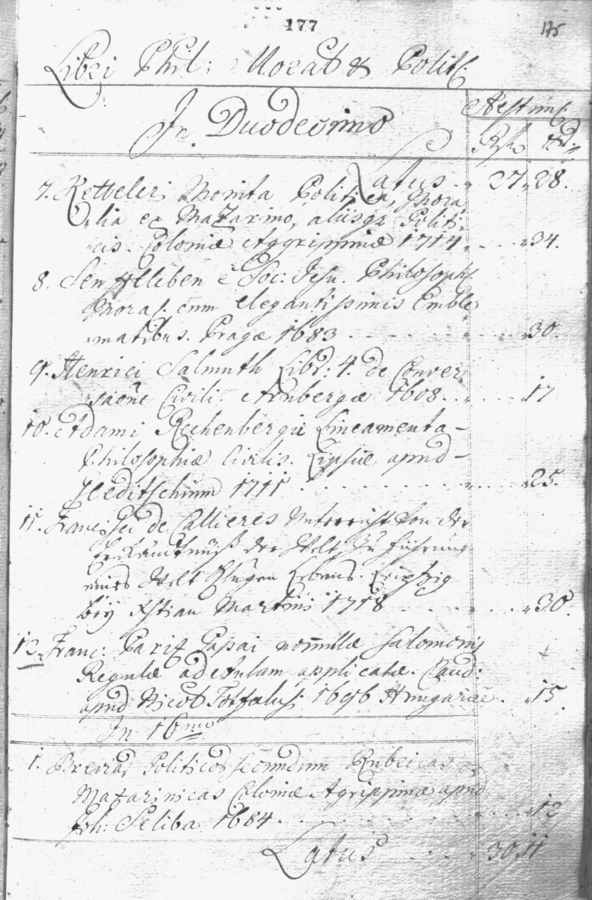 177
175
Libri Phil: Moral & Politi
In Duodecimo
Aestima
Rfl. Xd.
Latus - 27,28.
7. Ketteleri Monita Politica, Mora
lia ex Mazarino, aliisq; Politi
cis. Coloniæ Aggrippinæ 1714 - - 34.
8. Senftleben è Soc: Jesu. Philosoph
Moral. cum elegantissimis Emble
matibus. Pragæ 1683 - - - 30.
9. Henrici Salmuth Libr: 4. de Conver
saõne Civili. Ambergæ 1608 - - 17
10. Adami Rechenbergii Lineamenta
Philosophiæ Civilis. Lipsiæ apud
Weditschium 1711 - - - 25.
11. Francisci de Callieres Unterricht von der
Erkäntnüß der Welt, zu führung
eines Welt Klugen Lebens. Leipzig
bey Xstian Martini 1718 - - - 30.
12. Franc: Pariz Papai nonnullæ Salomonis
Regulæ ad edulam applicatæ. Claud:
apud Nicol Totfalusi 1696 Hungaricè. 15.
In 16mo
1. Breviar Politicor secundum Rubricas
Mazarinicas Coloniæ Agrippinæ apud
Joh: Seliba 1684 - - - 12
Latus - - - 30,11